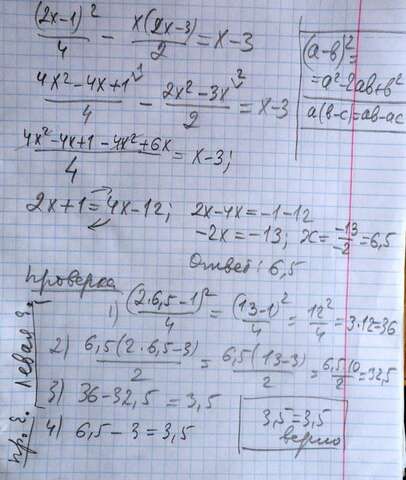 (2x-1)²/4 - x(2x-3)/2 = x-3
(a-b)²=
=a²-2ab+b²
a(b-c)=ab-ac
4x²-4x+1/4 - 2x²-3x/2 = x-3
4x²-4x+1-4x²+6x/4 = x-3;
2x+1=4x-12; 2x-4x=-1-12
-2x=-13; x=-13/-2=6,5
Ответ: 6,5
Проверка
Левая з.
1) (2·6,5-1)²/4 = (13-1)²/4 = 12²/4 = 3·12=36
2) 6,5(2·6,5-3)/2 = 6,5(13-3)/2 = 6,5·10/2=32,5
3) 36-32,5=3,5
пр. з.
4) 6,5-3=3,5
3,5=3,5
верно